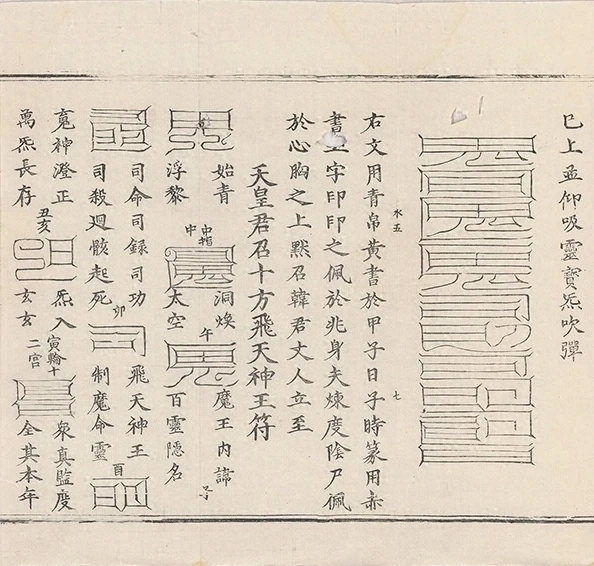 巳上孟仰吸靈寶炁吹彈
水五
七
右文用青帛黃書於甲子日子時篆用赤
書字印印之佩於兆身夫煉度陰尸佩
於心胸之上默召韓君丈人立至
天皇君召十方飛天神王符
始青
浮黎
中指
中
洞煥
太空
午
魔王內諱
百靈隱名
子
司命司錄司功
司殺迴骸起死
卯
飛天神王
制魔命靈
酉
魂神澄正
萬炁長存
丑亥
炁入
玄玄
寅輪十
二宮
衆真監度
全其本年